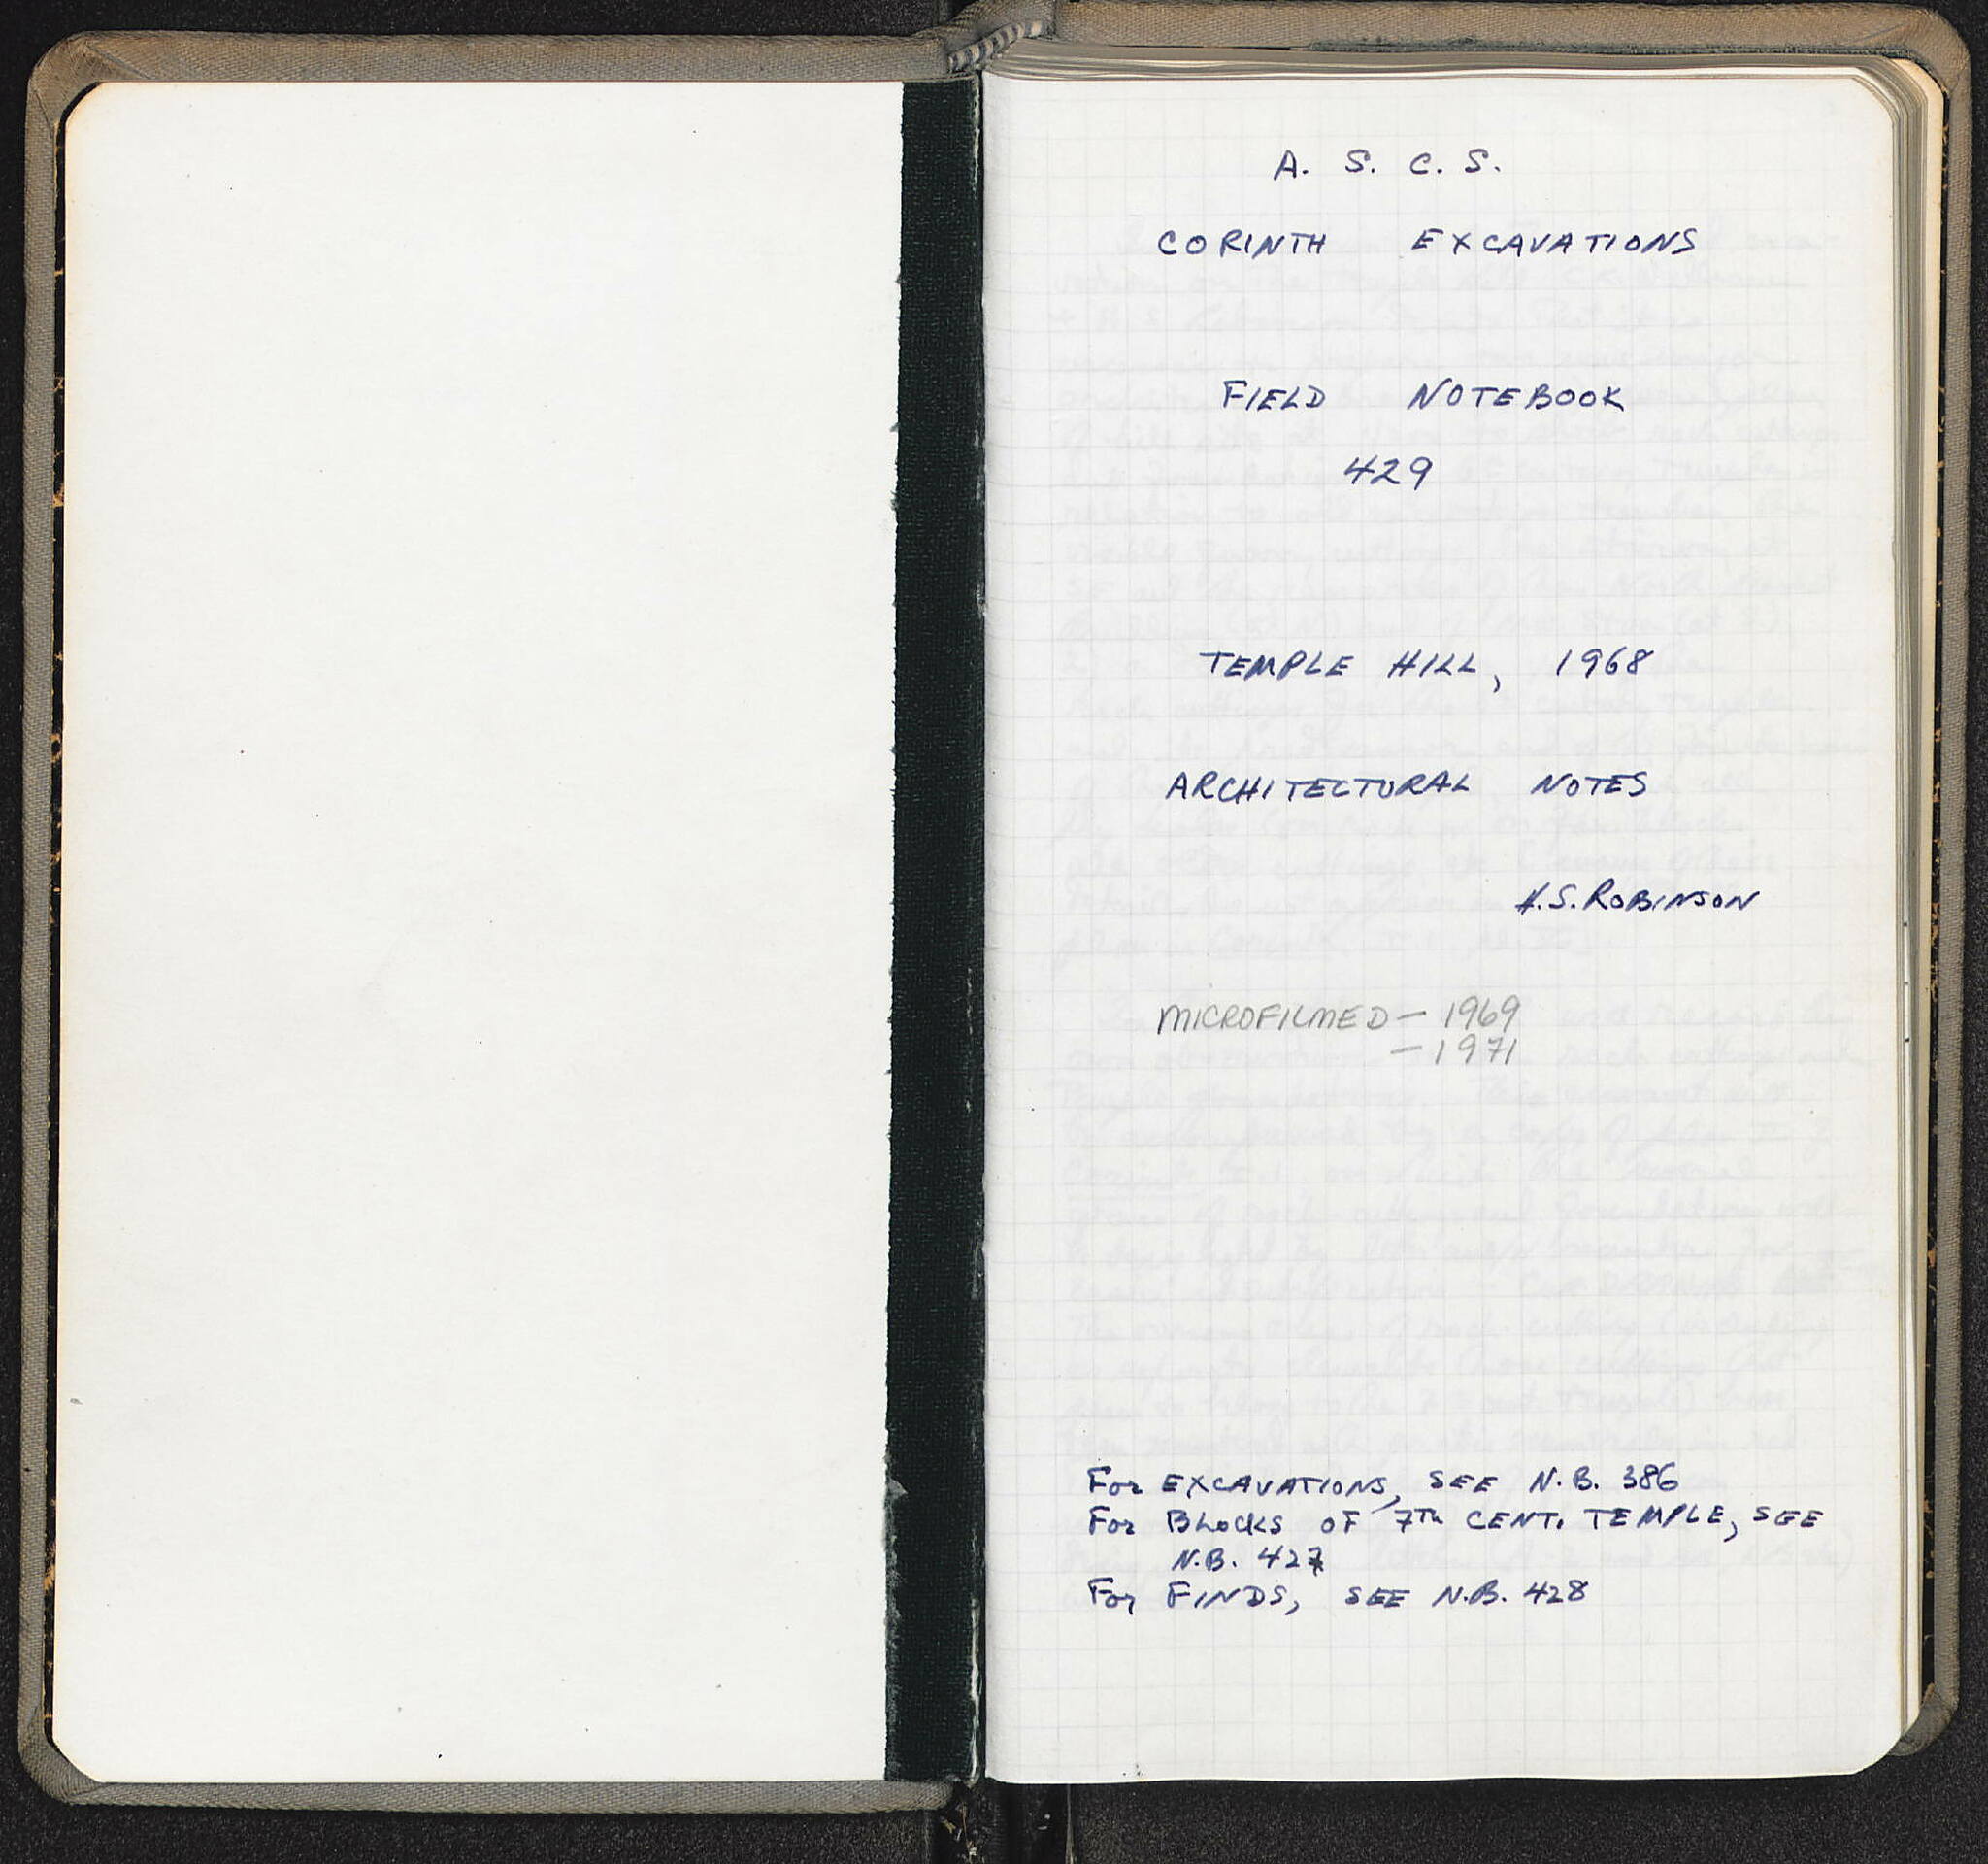 A. S. C. S.
CORINTH EXCAVATIONS
FIELD NOTEBOOK
429
TEMPLE HILL, 1968
ARCHITECTURAL NOTES
H.S. ROBINSON
MICROFILMED — 1969
— 1971
For EXCAVATIONS, SEE N.B. 386
For BLOCKS OF 7TH CENT. TEMPLE, SEE
N.B. 427
For FINDS, SEE N.B. 428